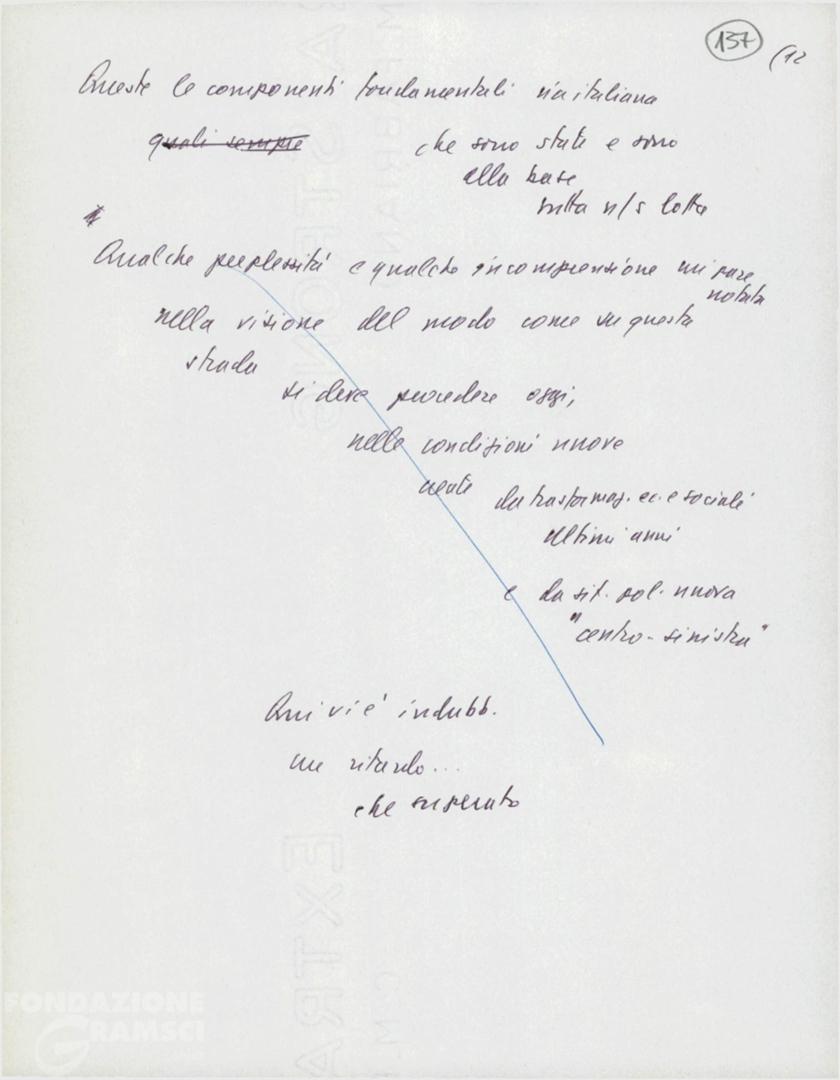 137 (12
Queste le componenti fondamentali via italiana
quali sempre che sono state e sono
alla base
tutta n/s lotta
Qualche perplessità e qualche incomprensione mi pare
notata
nella visione del modo come su questa
strada
si deve procedere oggi,
nelle condizioni nuove
create da trasformaz. ec. e sociali
ultimi anni
e da sit. pol. nuova
"centro-sinistra"
Qui vi è indubb.
un ritardo...
che superato
FONDAZIONE
GRAMSCI
EXTRA